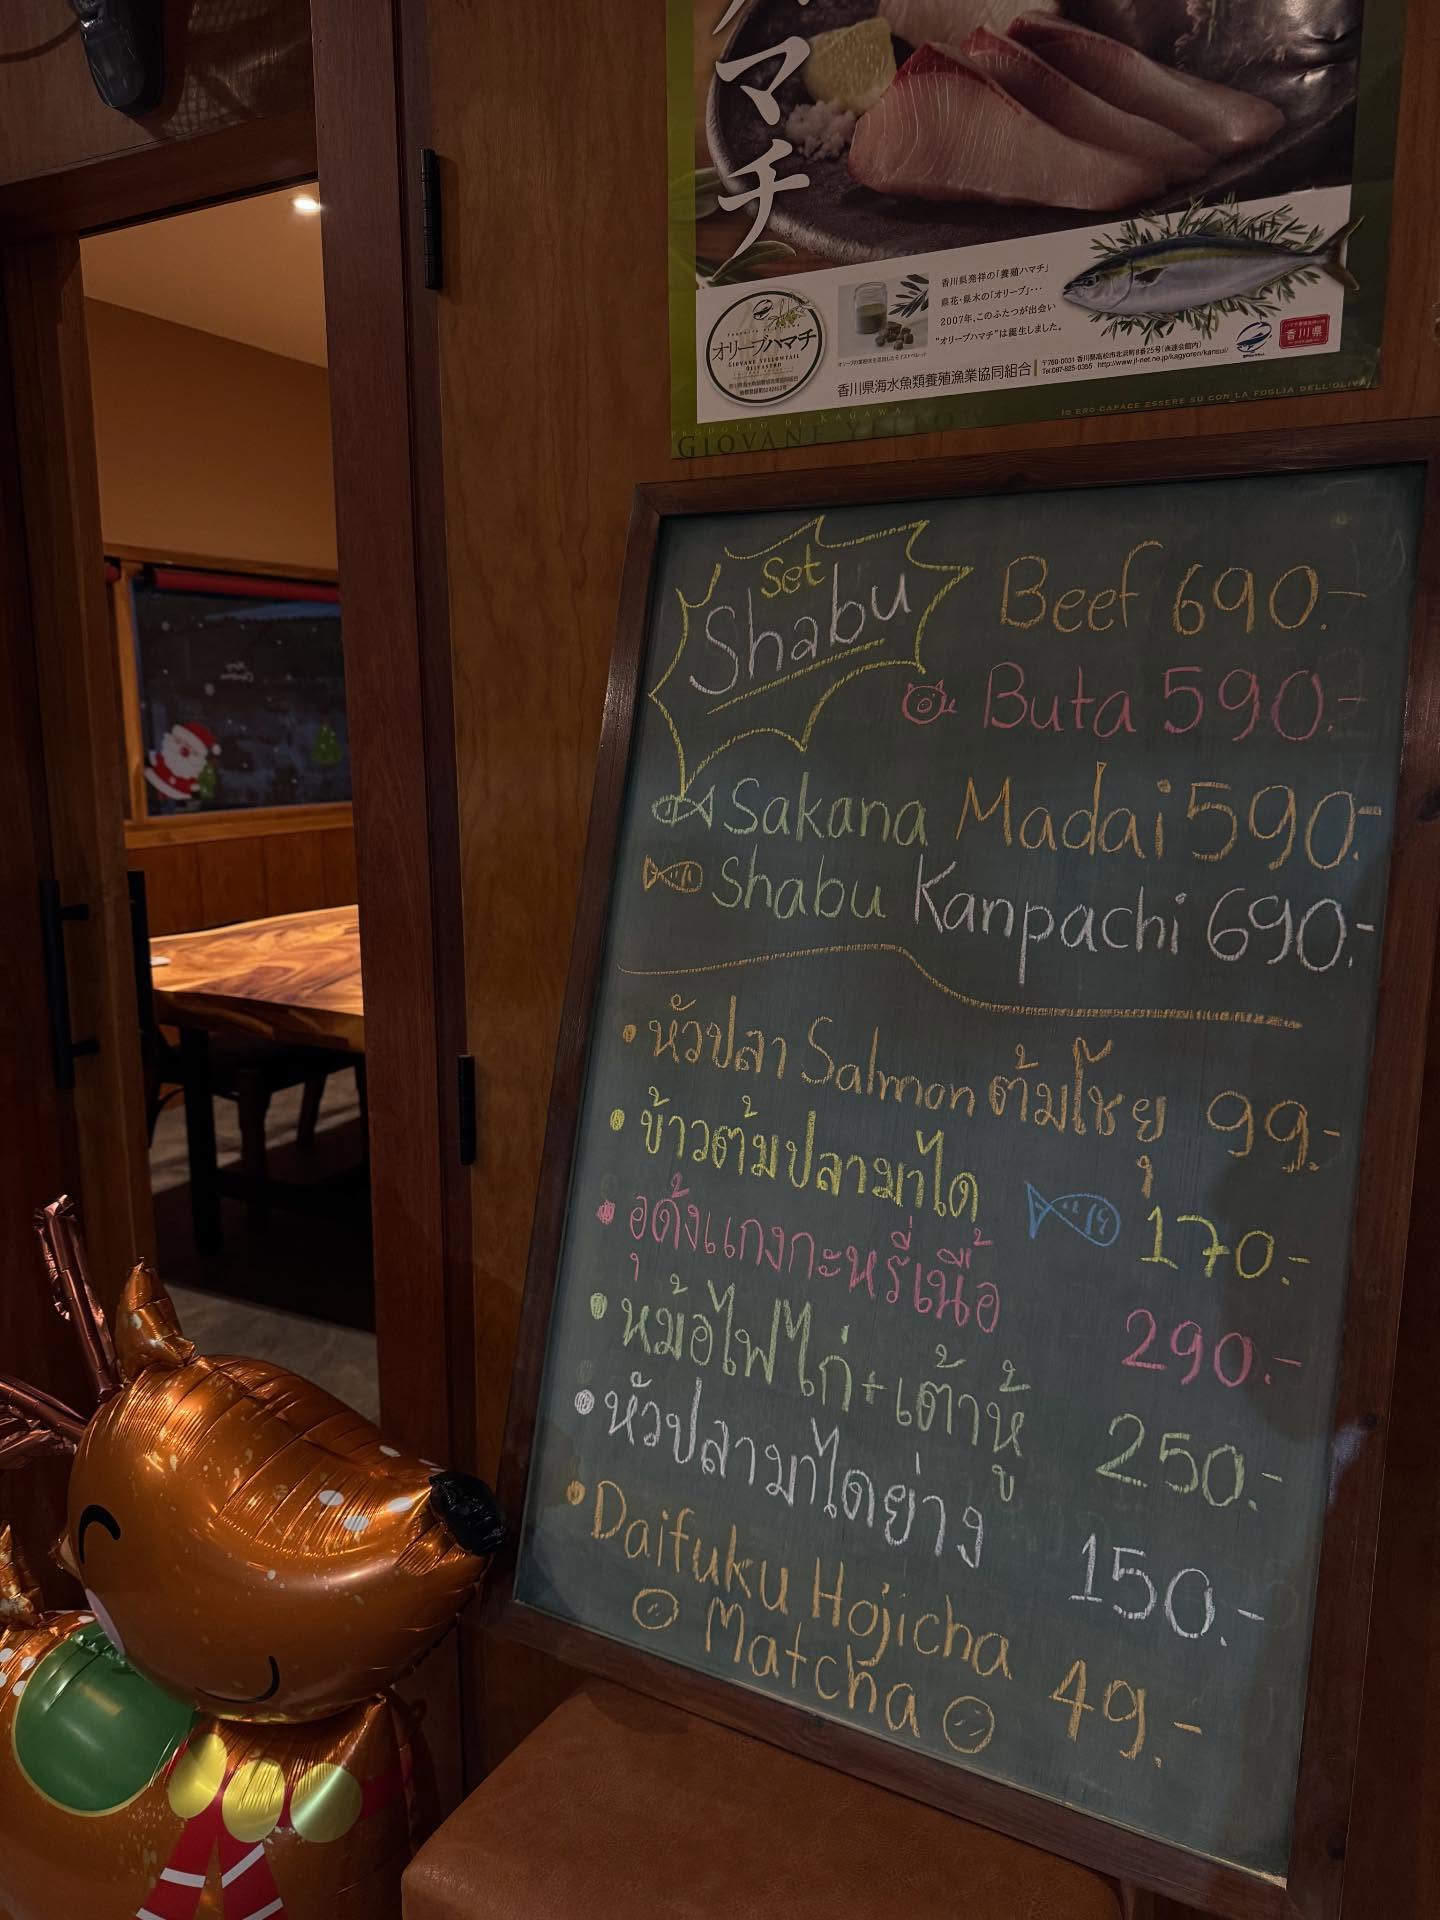 マチ
香川県発祥の「養殖ハマチ」
県花・県木の「オリーブ」…
2007年、このふたつが出会い
"オリーブハマチ"は誕生しました。
オリーブハマチ
香川県海水魚類養殖漁業協同組合
〒760-0031 香川県高松市北浜町8番25号(漁連会館内)
Tel.087-825-0355 http://www.jf-net.ne.jp/kagyoren/kansui/
香川県
PRODOTTO DI KAGAWA
GIOVANE
IO ERO CAPACE ESSERE SU CON LA FOGLIA DELL'OLIVA
Set
Shabu
Beef 690.-
Buta 590.-
Sakana Madai 590.-
Shabu Kanpachi 690.-
• หัวปลา Salmon ต้มโชยุ 99.-
• ข้าวต้มปลามาได 170.-
• อุด้งแกงกะหรี่เนื้อ 290.-
• หม้อไฟไก่+เต้าหู้ 250.-
• หัวปลามาไดย่าง 150.-
• Daifuku Hojicha
Matcha 49.-